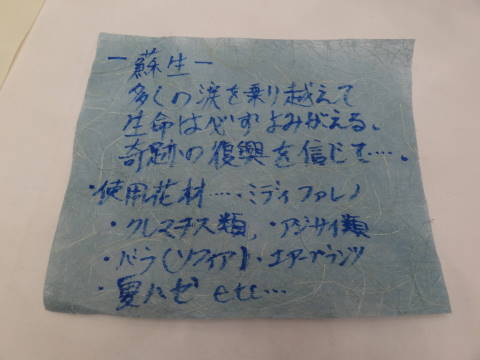 －蘇生－
多くの涙を乗り越えて
生命は必ずよみがえる、
奇跡の復興を信じて…。
・使用花材…・ミディファレノ
・クレマチス類、・アジサイ類
・バラ(ソフィア)・エアープランツ
・夏ハゼ etc…